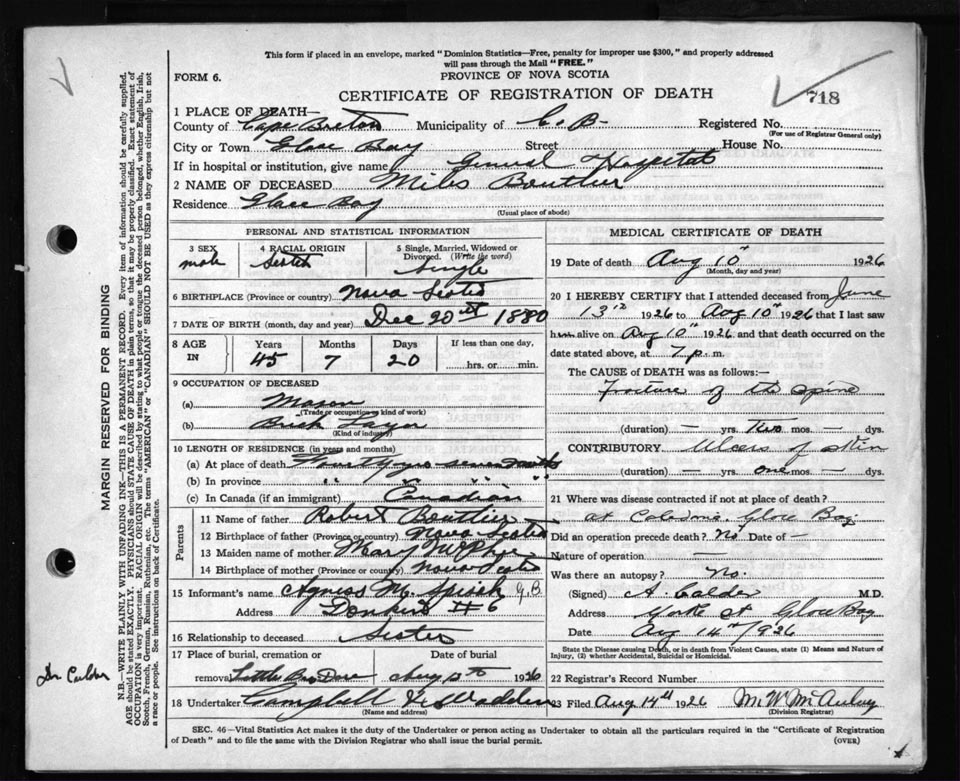 This form if placed in an envelope, marked "Dominion Statistics—Free, penalty for improper use $300," and properly addressed
will pass through the Mail "FREE."
FORM 6.
PROVINCE OF NOVA SCOTIA
718
CERTIFICATE OF REGISTRATION OF DEATH
1 PLACE OF DEATH—
County of Cape Breton Municipality of C. B. Registered No.
(For use of Registrar General only)
City or Town Glace Bay Street House No.
If in hospital or institution, give name General Hospital
2 NAME OF DECEASED Miles Boutlier
Residence Glace Bay
(Usual place of abode)
PERSONAL AND STATISTICAL INFORMATION
3 SEX 4 RACIAL ORIGIN 5 Single, Married, Widowed or
Divorced. (Write the word)
male Scotch Single
6 BIRTHPLACE (Province or country) Nova Scotia
7 DATE OF BIRTH (month, day and year) Dec 20st 1880
8 AGE IN Years Months Days If less than one day,
45 7 20 hrs. or min.
9 OCCUPATION OF DECEASED
(a) Mason
(Trade or occupation or kind of work)
(b) Brick Layer
(Kind of industry)
10 LENGTH OF RESIDENCE (in years and months)
(a) At place of death seven
(b) In province " " " "
(c) In Canada (if an immigrant) Canadian
Parents
11 Name of father Robert Boutlier
12 Birthplace of father (Province or country) Nova Scotia
13 Maiden name of mother Mary
14 Birthplace of mother (Province or country) Nova Scotia
15 Informant's name Agness M. G.B.
Address # 6
16 Relationship to deceased Sister
17 Place of burial, cremation or Date of burial
removal Little Bras Dore 1926
18 Undertaker Campbell
(Name and address)
MEDICAL CERTIFICATE OF DEATH
19 Date of death Aug 10th 1926
(Month, day and year)
20 I HEREBY CERTIFY that I attended deceased from June
13th 1926 to Aug 10th 1926 that I last saw
him alive on Aug 10th 1926 and that death occurred on
date stated above, at 7 p. m.
The CAUSE of DEATH was as follows:—
Fracture of the spine
(duration) — yrs. Two mos. — dys.
CONTRIBUTORY Ulcers of skin
(duration) — yrs. one mos. — dys.
21 Where was disease contracted if not at place of death?
at Caledonia, Glace Bay
Did an operation precede death? No Date of —
Nature of operation —
Was there an autopsy? No.
(Signed) A. Calder M.D.
Address York St Glace Bay
Date Aug 14th/926
State the Disease causing Death, or in death from Violent Causes, state (1) Means and Nature of
Injury, (2) whether Accidental, Suicidal or Homicidal.
22 Registrar's Record Number
23 Filed Aug 14th 1926 M. W. McAulay
(Division Registrar)
SEC. 46—Vital Statistics Act makes it the duty of the Undertaker or person acting as Undertaker to obtain all the particulars required in the "Certificate of Registration
of Death" and to file the same with the Division Registrar who shall issue the burial permit.
(OVER)
MARGIN RESERVED FOR BINDING
N.B.—WRITE PLAINLY WITH UNFADING INK—THIS IS A PERMANENT RECORD. Every item of information should be carefully supplied.
AGE should be stated EXACTLY. PHYSICIANS should STATE CAUSE OF DEATH in plain terms, so that it may be properly classified. Exact statement of
OCCUPATION is very important. RACIAL ORIGIN will be described by stating to what people or tongue the deceased person belonged, whether English, Irish,
Scotch, French, German, Russian, Ruthenian, etc. The terms "AMERICAN" or "CANADIAN" SHOULD NOT BE USED as they express citizenship but not
a race or people. See instructions on back of Certificate.
Dr Calder